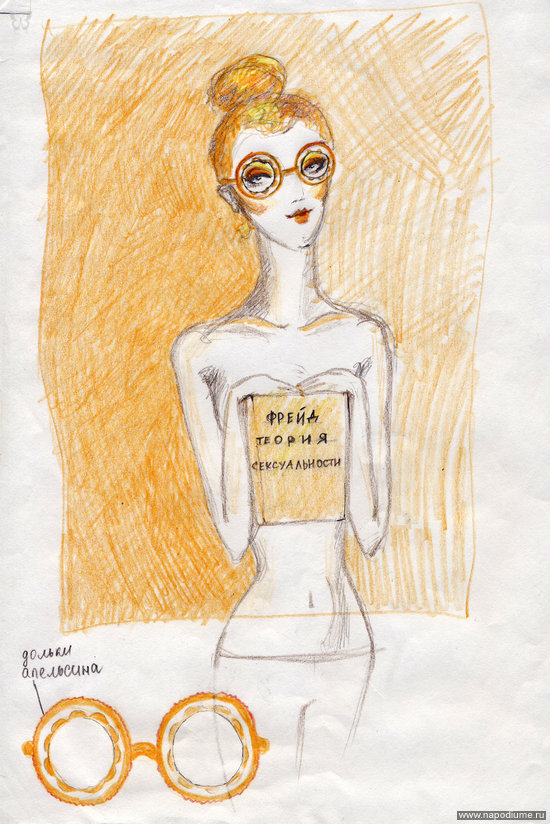 ФРЕЙД
ТЕОРИЯ
СЕКСУАЛЬНОСТИ
дольки
апельсина
www.napodiume.ru